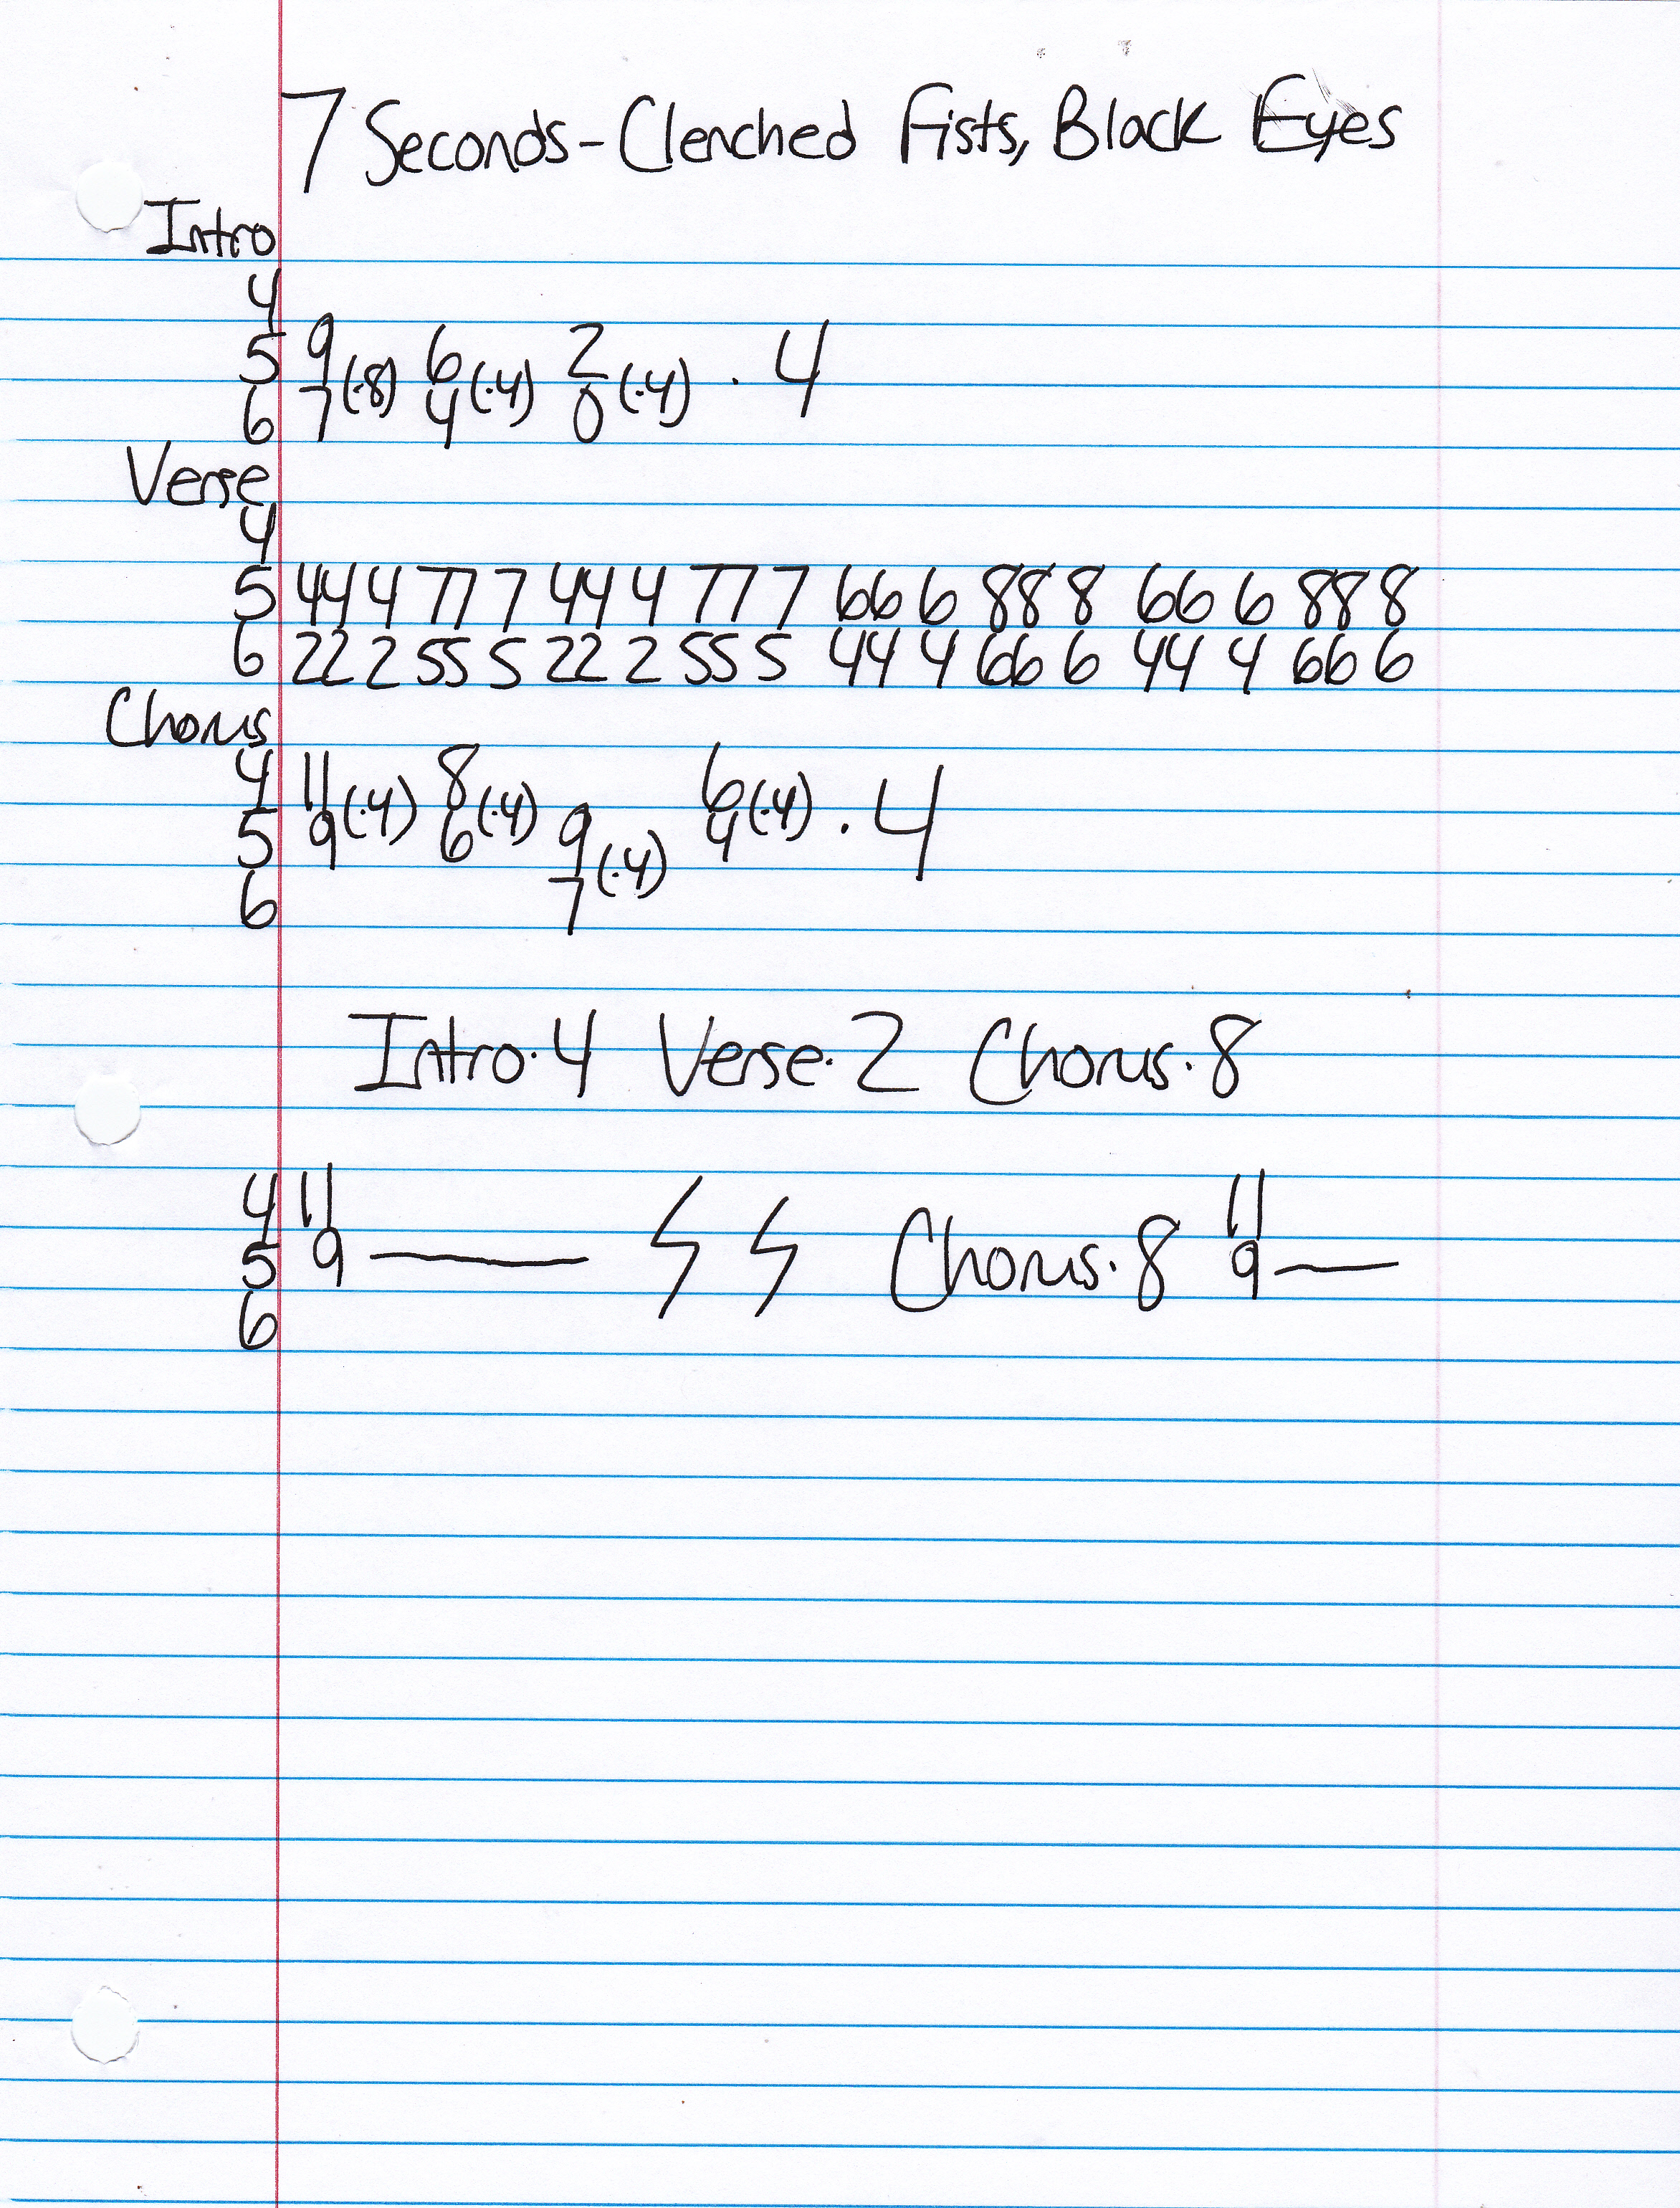 7 Seconds - Clenched Fists, Black Eyes
Intro
4
5 9 6 2
6 7 (·8) 4 (·4) 0 (·4) · 4
Verse
4
5 44 4 77 7 44 4 77 7 66 6 88 8 66 6 88 8
6 22 2 55 5 22 2 55 5 44 4 66 6 44 4 66 6
Chorus
4 11 8 6
5 9 (·4) 6 (·4) 9 4 (·4) · 4
6 7 (·4)
Intro·4 Verse·2 Chorus·8
4 11 11
5 9 — Chorus·8 9 —
6